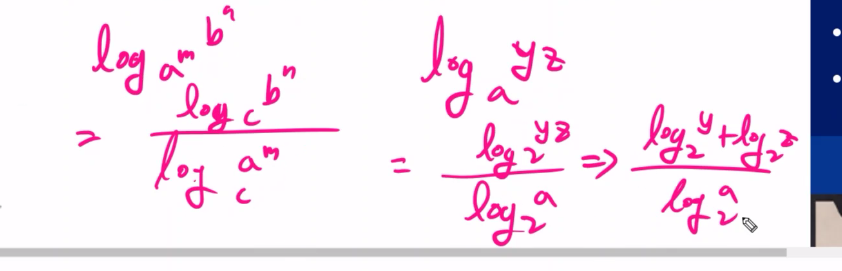 log_{a^m} b^n
= \frac{log_c b^n}{log_c a^m}
log_a yz
= \frac{log_2 yz}{log_2 a} ⇒ \frac{log_2 y + log_2 z}{log_2 a}